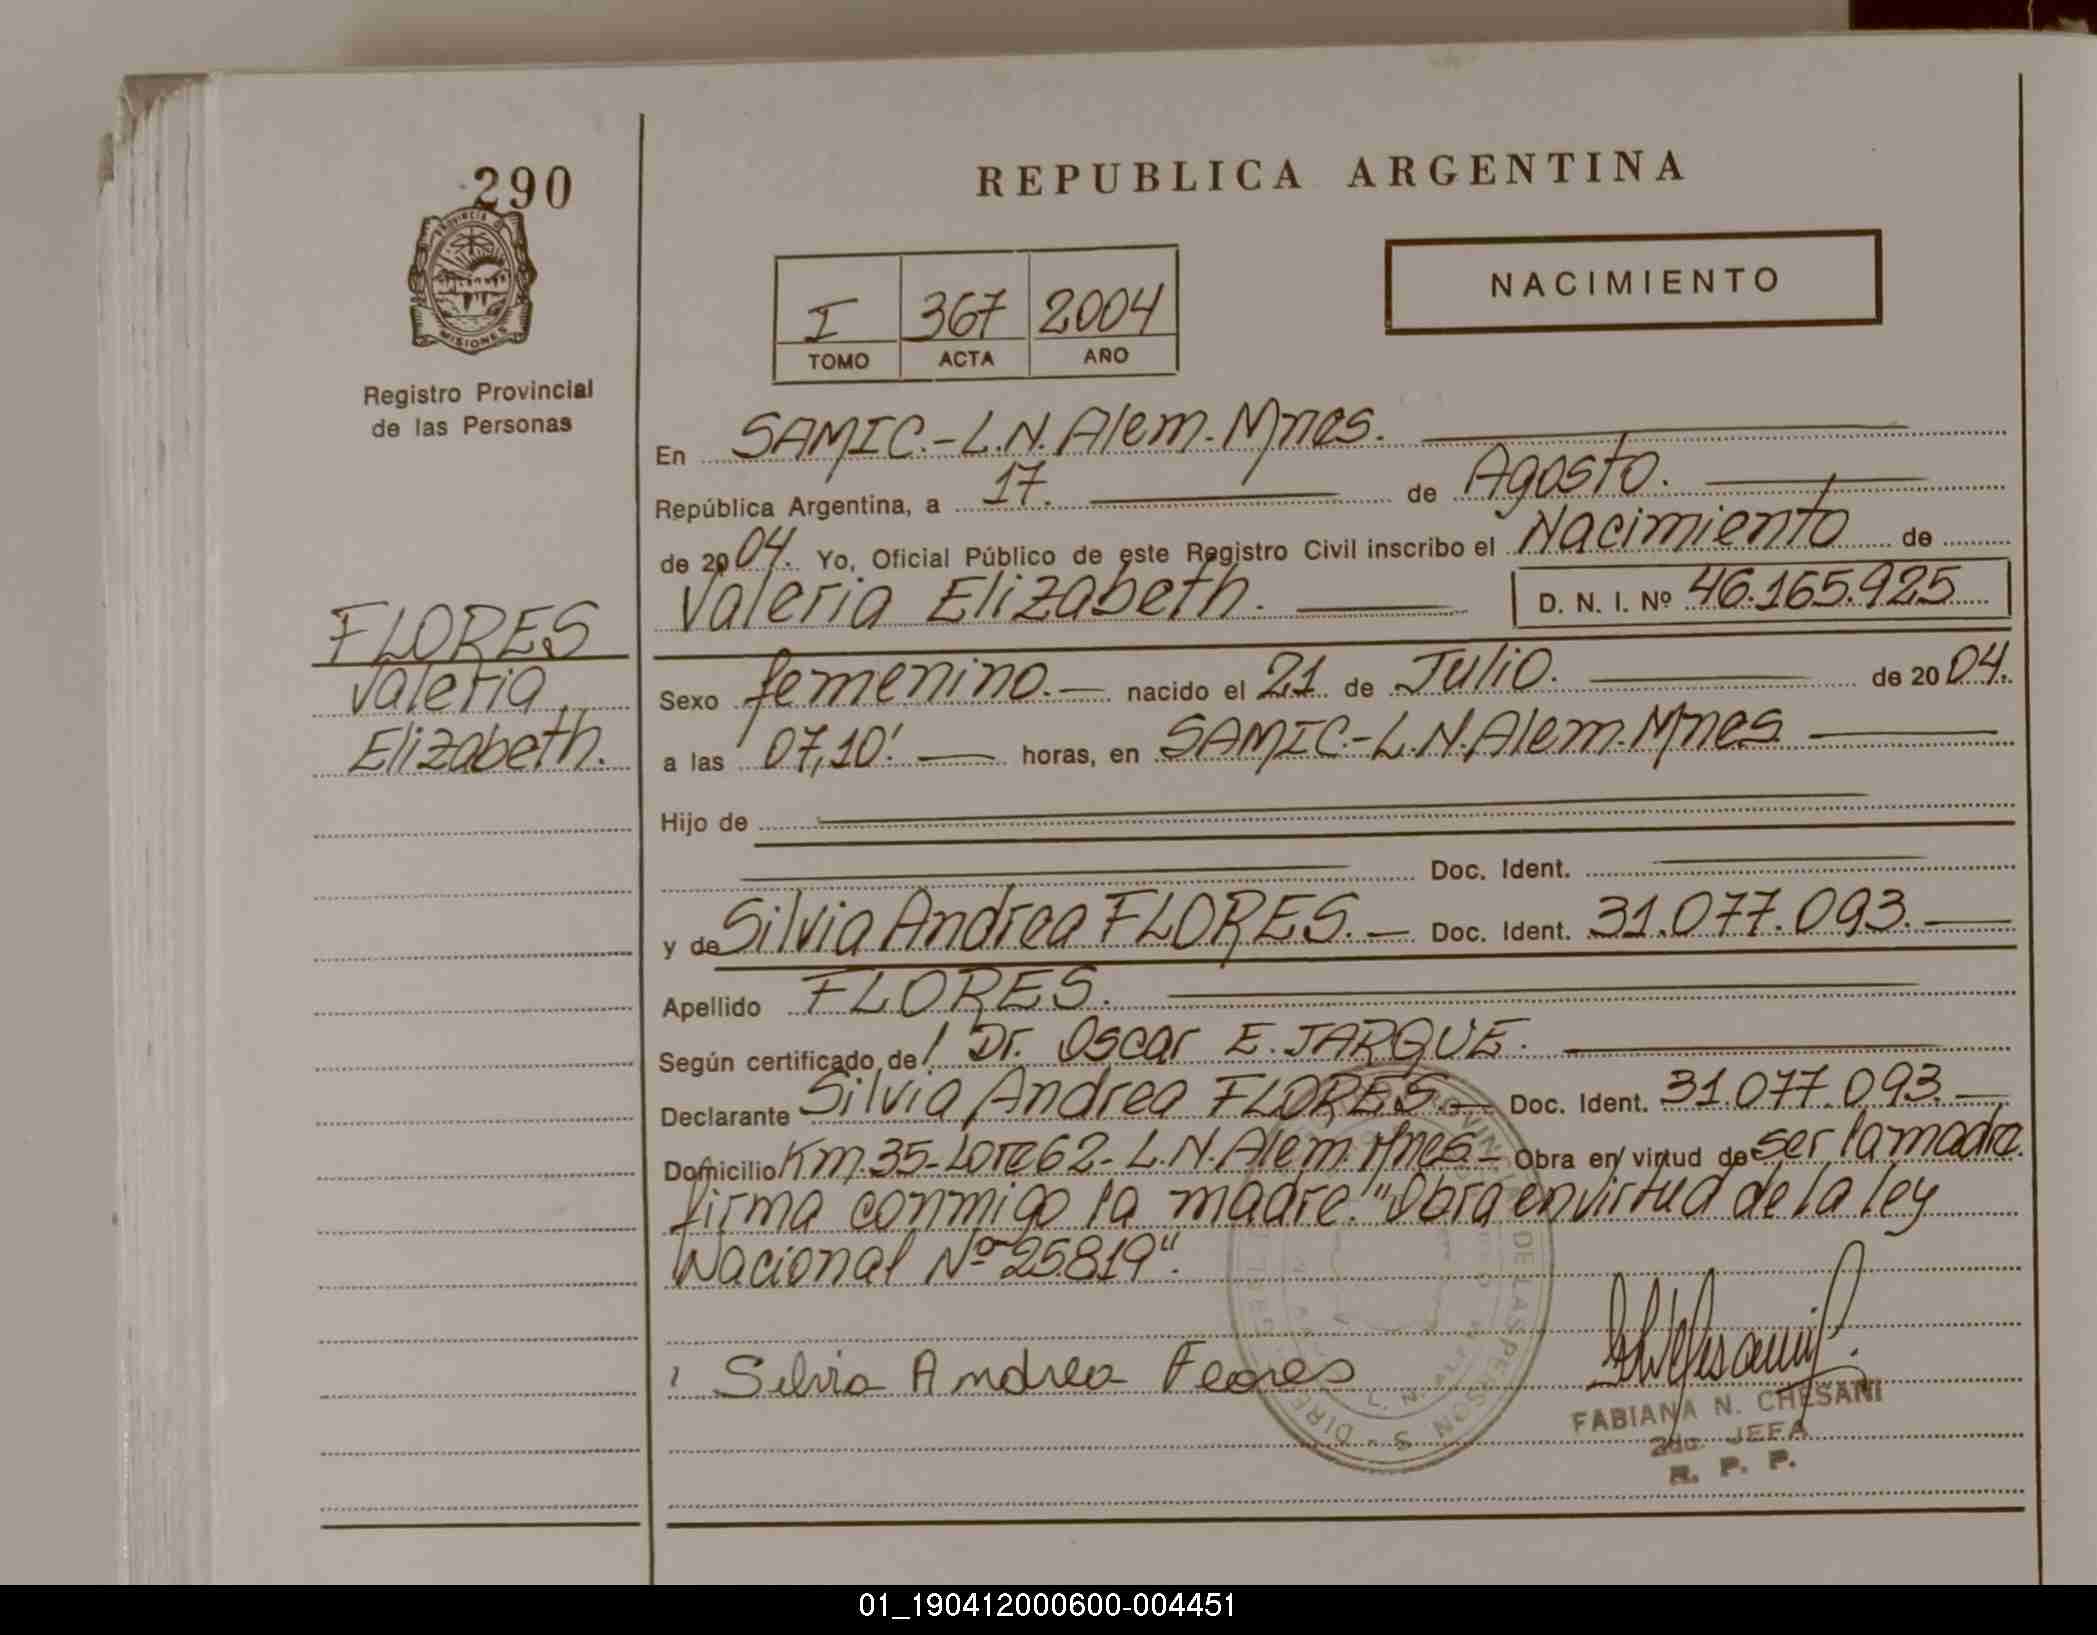 290
PROVINCIA DE
MISIONES
Registro Provincial
de las Personas
FLORES
Valeria
Elizabeth.
REPUBLICA ARGENTINA
NACIMIENTO
I 367 2004
TOMO ACTA AÑO
En SAMIC.-L.N.Alem.Mnes.
República Argentina, a 17. de Agosto.
de 2004. Yo, Oficial Público de este Registro Civil inscribo el Nacimiento de
Valeria Elizabeth. D. N. I. Nº 46.165.925
Sexo femenino.- nacido el 21 de Julio. de 2004.
a las 07,10' horas, en SAMIC.-L.N.Alem.Mnes
Hijo de
Doc. Ident.
y de Silvia Andrea FLORES.- Doc. Ident. 31.077.093.-
Apellido FLORES.
Según certificado de/ Dr. Oscar E. JARQUE.
Declarante Silvia Andrea FLORES.- Doc. Ident. 31.077.093.-
Domicilio Km.35-Lote62-L.N.Alem.Mnes- Obra en/ virtud de ser la madre.
firma conmigo la madre."Obra en virtud de la ley
Nacional Nº25819".
Silvia Andrea Flores
FABIANA N. CHESANI
2da. JEFA
R. P. P.
01_190412000600-004451